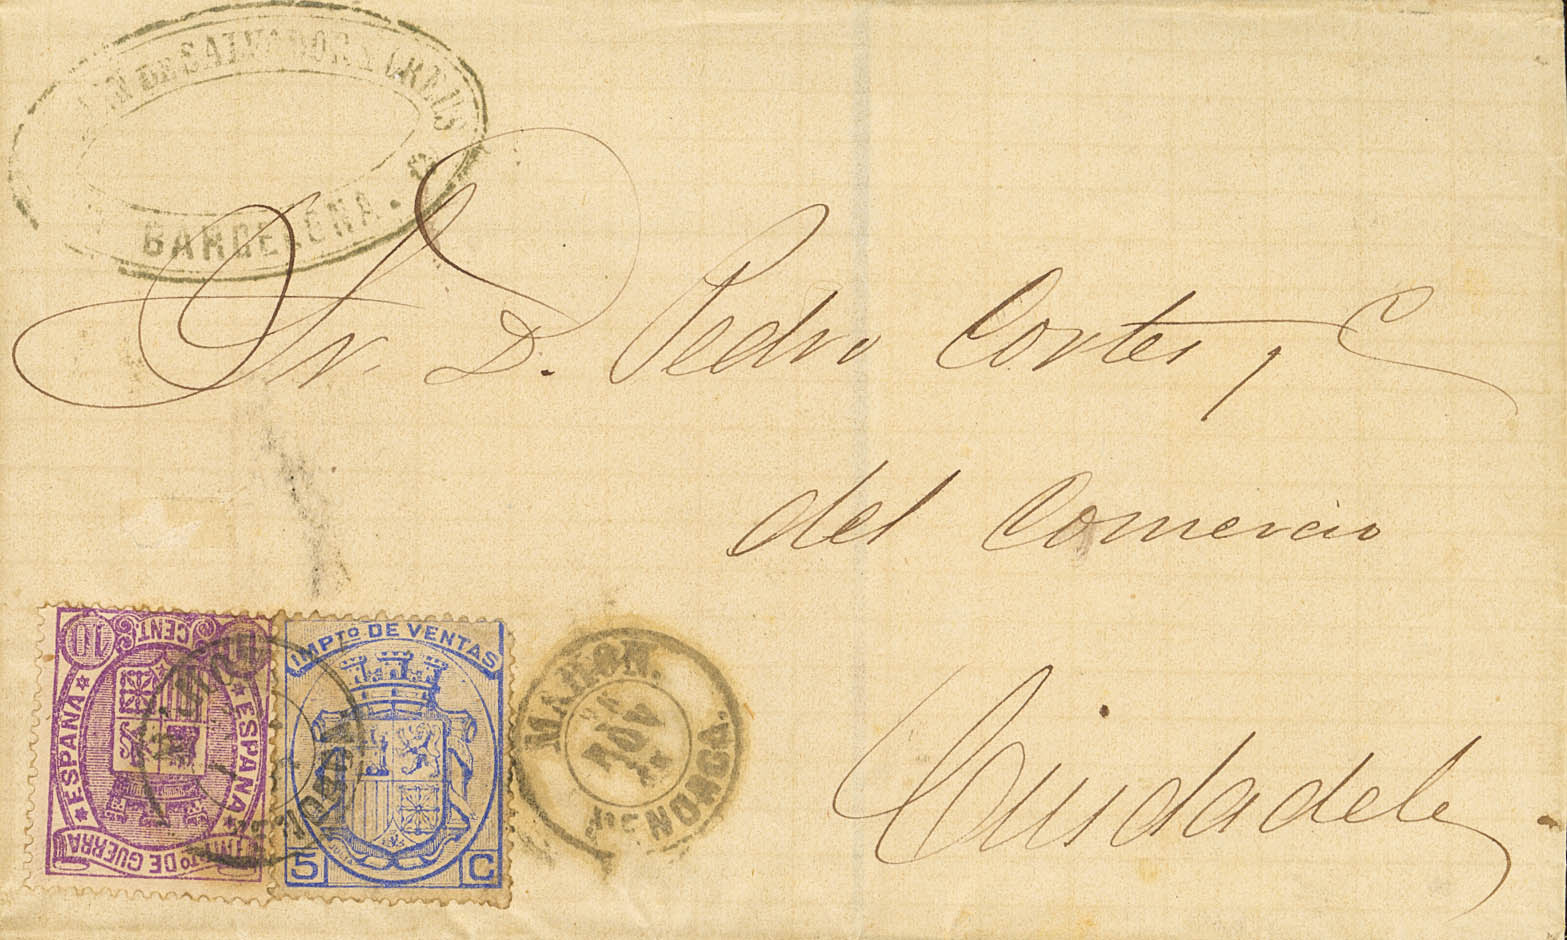 DE SALVADOR Y CREUS
BARCELONA.
Sr. D. Pedro Cortes y C
del Comercio
Ciudadela
10
CENT
★ ESPAÑA ★
★ ESPAÑA ★
IMPTO DE GUERRA
IMPTO DE VENTAS
5 C
MAHON.
NOV
MENORCA.